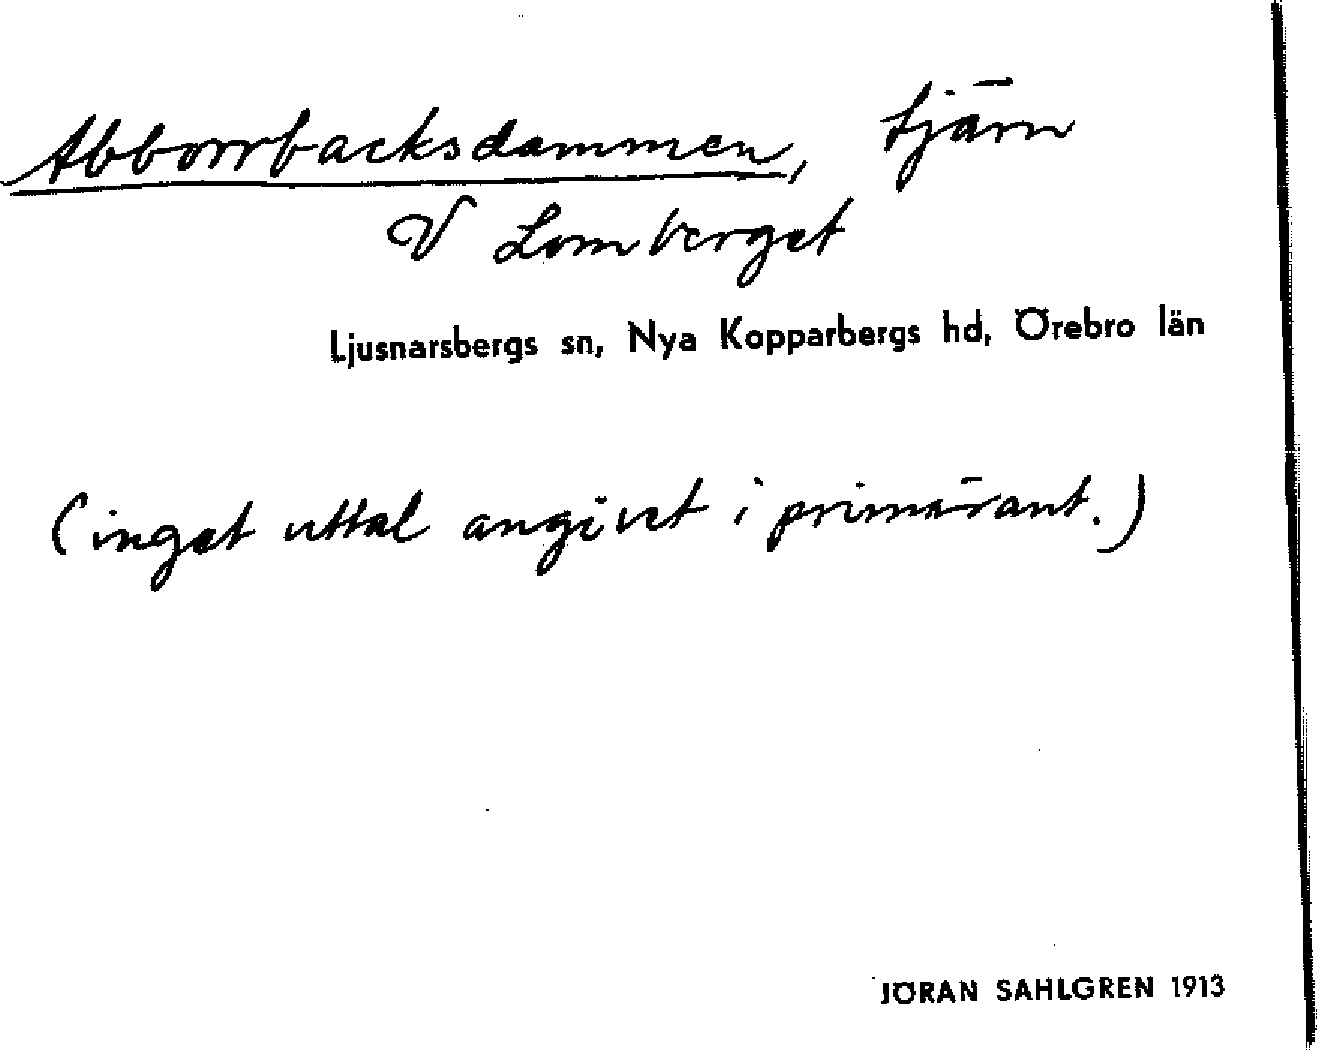 Abborrbacksdammen, tjärn
V Lomberget
Ljusnarsbergs sn, Nya Kopparbergs hd, Örebro län
(inget uttal angivet i primärant.)
JÖRAN SAHLGREN 1913